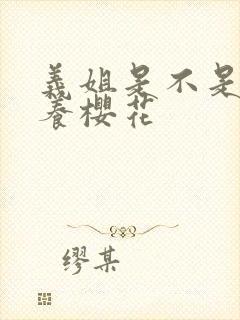 義姐是不是
養櫻花
缪某